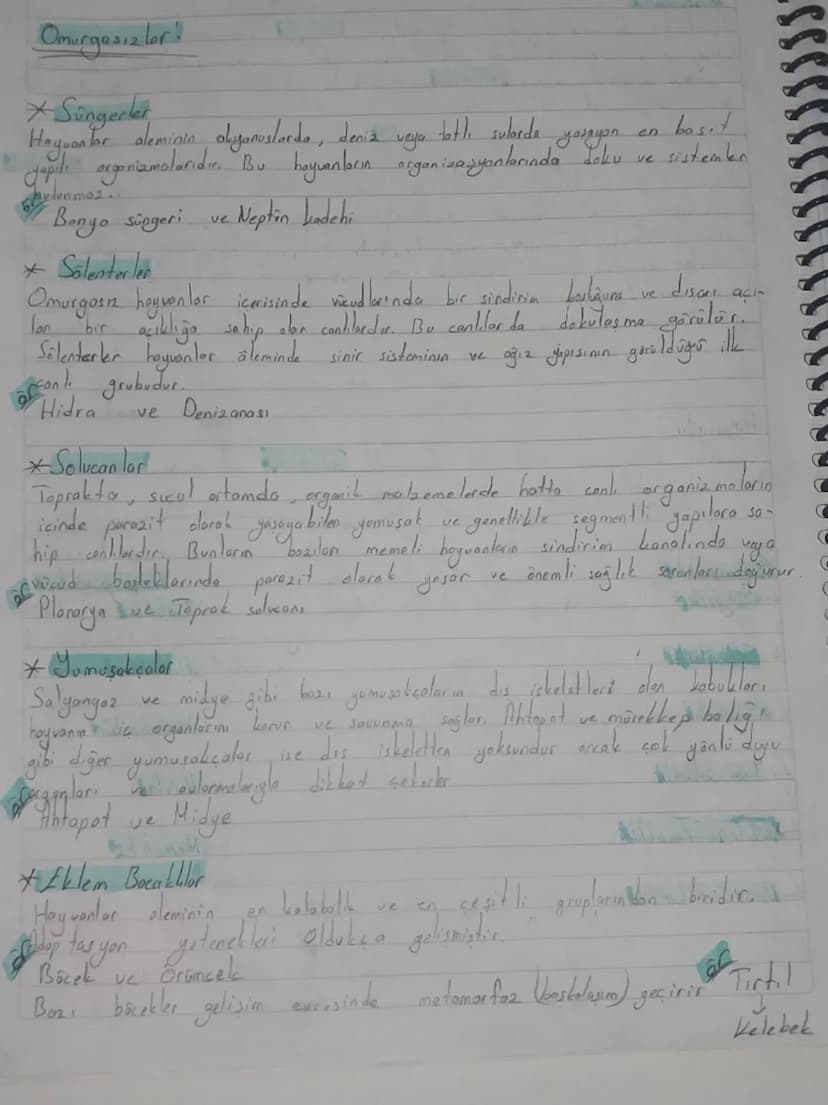 Omurgasızlar!
* Süngerler
Hayvanlar aleminin okyanuslarda, deniz veya tatlı sularda yaşayan en basit
yapılı organizmalarıdır. Bu hayvanların organizasyonlarında doku ve sistemler
bulunmaz.
ör Banyo süngeri ve Neptün kadehi
* Sölenterler
Omurgasız hayvanlar içerisinde vücudlarında bir sindirim boşluğuna ve dışarı açı-
lan bir açıklığa sahip olan canlılardır. Bu canlılarda dokulaşma görülür.
Sölenterler hayvanlar aleminde sinir sisteminin ve ağız yapısının görüldüğü ilk
canlı grubudur.
ör Hidra ve Denizanası
* Solucanlar
Toprakta, sucul ortamda, organik malzemelerde hatta canlı organizmaların
içinde parazit olarak yaşayabilen yumuşak ve genellikle segmentli yapılara sa-
hip canlılardır. Bunların bazıları memeli hayvanların sindirim kanalında veya
vücud boşluklarında parazit olarak yaşar ve önemli sağlık sorunları doğurur.
ör Planarya ve Toprak solucanı
* Yumuşakçalar
Salyangoz ve midye gibi bazı yumuşakçaların dış iskeletleri olan kabukları,
hayvanın iç organlarını korur ve savunma sağlar. Ahtapot ve mürekkep balığı
gibi diğer yumuşakçalar ise dış iskeletten yoksundur ancak çok yönlü duyu
organları ve avlanmalarıyla dikkat çekerler
ör Ahtapot ve Midye
* Eklem Bacaklılar
Hayvanlar aleminin en kalabalık ve en çeşitli gruplarından biridir.
Adaptasyon yetenekleri oldukça gelişmiştir.
ör Böcek ve Örümcek
Bazı böcekler gelişim evresinde metamorfoz (başkalaşım) geçirir ör Tırtıl
↓
Kelebek